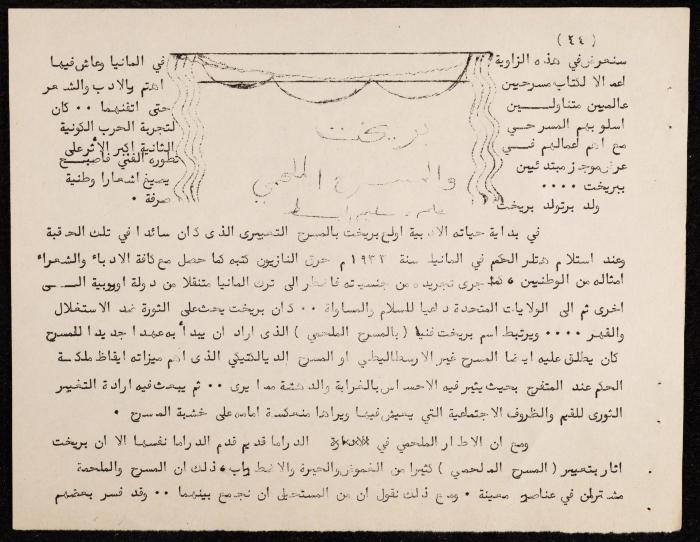 (٢٤)
سنعرض في هذه الزاوية
اعمالا لكتاب مسرحيين
عالميين متناولين
اسلوبهم المسرحي
مع اهم اعمالهم في
عرض موجز مبتدئين
ببريخت ٠٠٠٠
ولد برتولد بريخت
بريخت
والمسرح الملحمي
في المانيا وعاش فيها
اهتم بالادب والشعر
حتى اتقنهما ٠٠ كان
لتجربة الحرب الكونية
الثانية اكبر الأثر على
تطوره الفني فأصبح
يصيغ اشعارا وطنية
صرفة ٠
في بداية حياته الادبية اولع بريخت بالمسرح التعبيرى الذى كان سائدا في تلك الحقبة
وعند استلام هتلر الحكم في المانيا سنة ١٩٣٣م حرق النازيون كتبه كما حصل مع كافة الادباء والشعراء
امثاله من الوطنيين، كما جرى تجريده من جنسيته فاضطر الى ترك المانيا متنقلا من دولة اوروبية الـى
اخرى ثم الى الولايات المتحدة داعيا للسلام والمساواة ٠٠ كان بريخت يحث على الثورة ضد الاستغلال
والقهر ٠٠٠٠ ويرتبط اسم بريخت فنيا (بالمسرح الملحمي) الذى اراد ان يبدأ به عهدا جديدا للمسرح
كان يطلق عليه ايضا المسرح غير الارسططاليطي او المسرح الديالكتيكي الذى اهم ميزاته ايقاظ ملكة
الحكم عند المتفرج بحيث يثير فيه الاحساس بالغرابة والدهشة مما يرى ٠٠ ثم يبعث فيه ارادة التغيير
الثورى للقيم والظروف الاجتماعية التي يعيش فيها ويراها منعكسة امامه على خشبة المسرح ٠
ومع ان الاطار الملحمي في الدراما قديم قدم الدراما نفسها الا ان بريخت
اثار بتعبير (المسرح الملحمي) كثيرا من الغموض والحيرة والاضطراب، ذلك ان المسرح والملحمة
مشتركان في عناصر معينة ٠ ومع ذلك نقول ان من المستحيل ان نجمع بينهما ٠٠ وقد فسر بعضهم